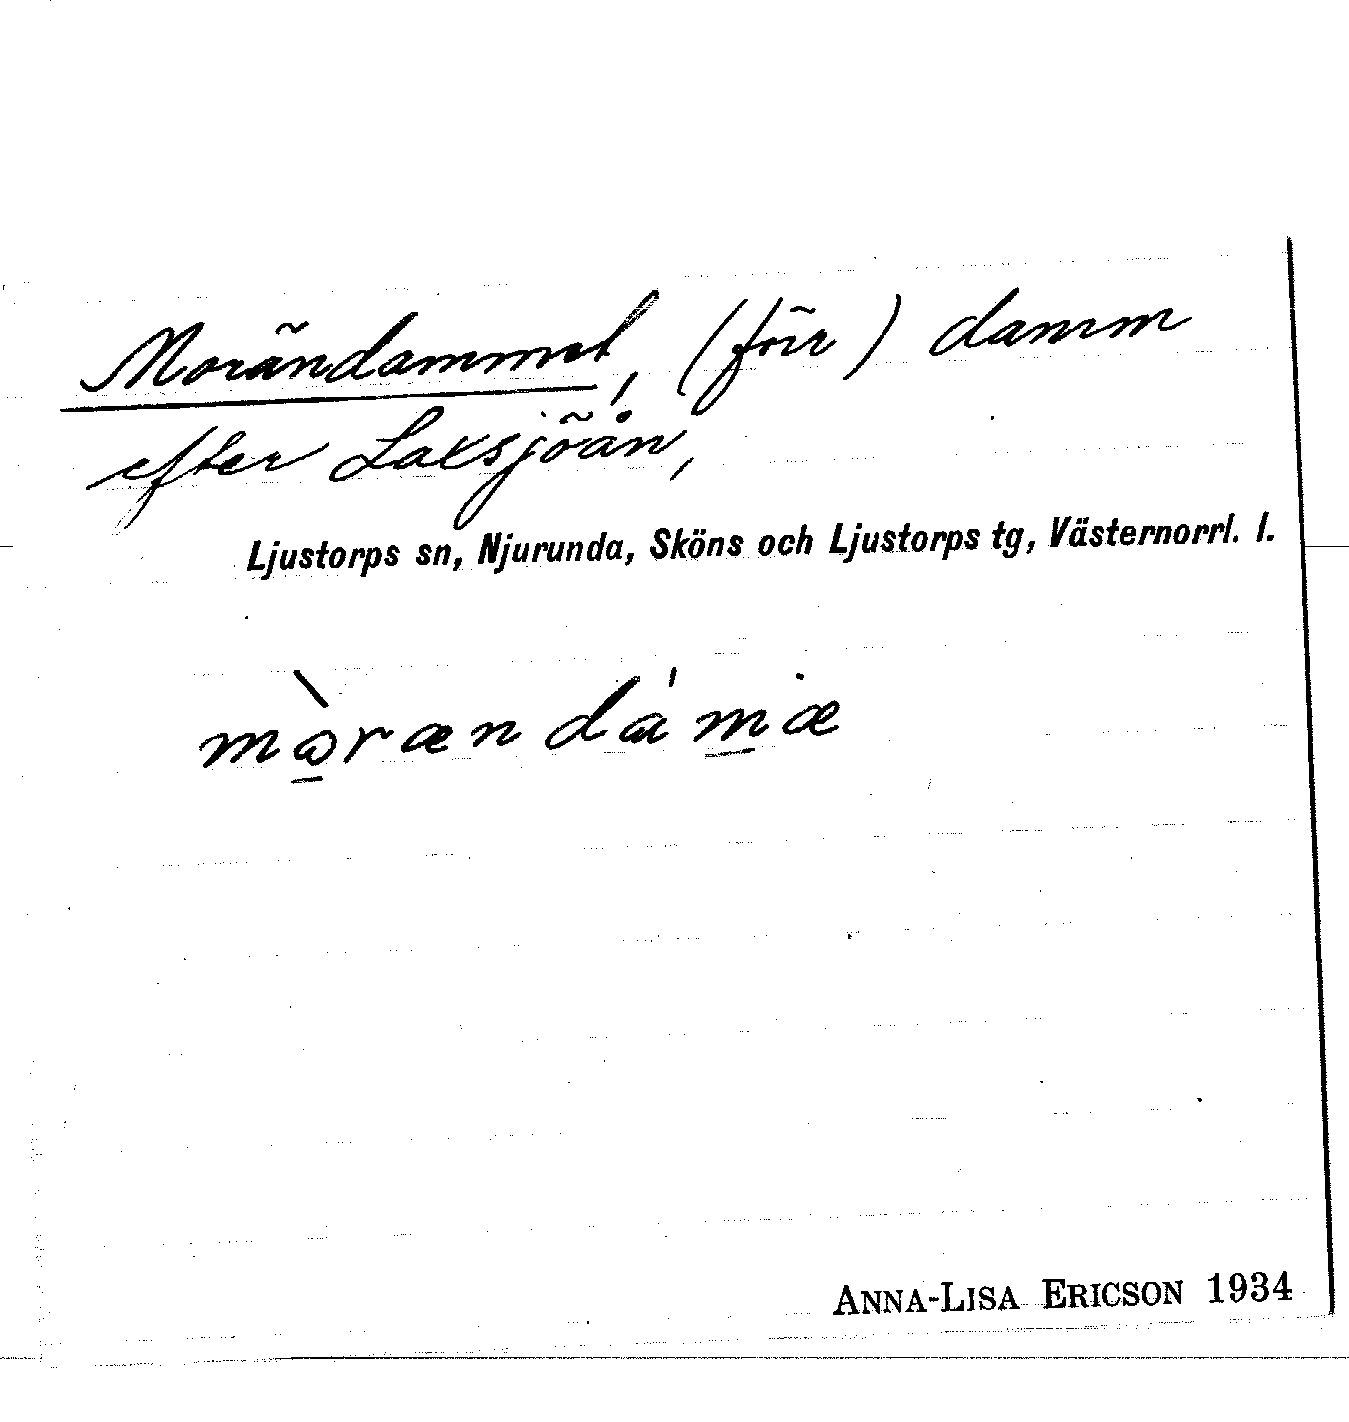 Morändammet, (förr) damm
efter Laxsjöån,
Ljustorps sn, Njurunda, Sköns och Ljustorps tg, Västernorrl. l.
ANNA-LISA ERICSON 1934